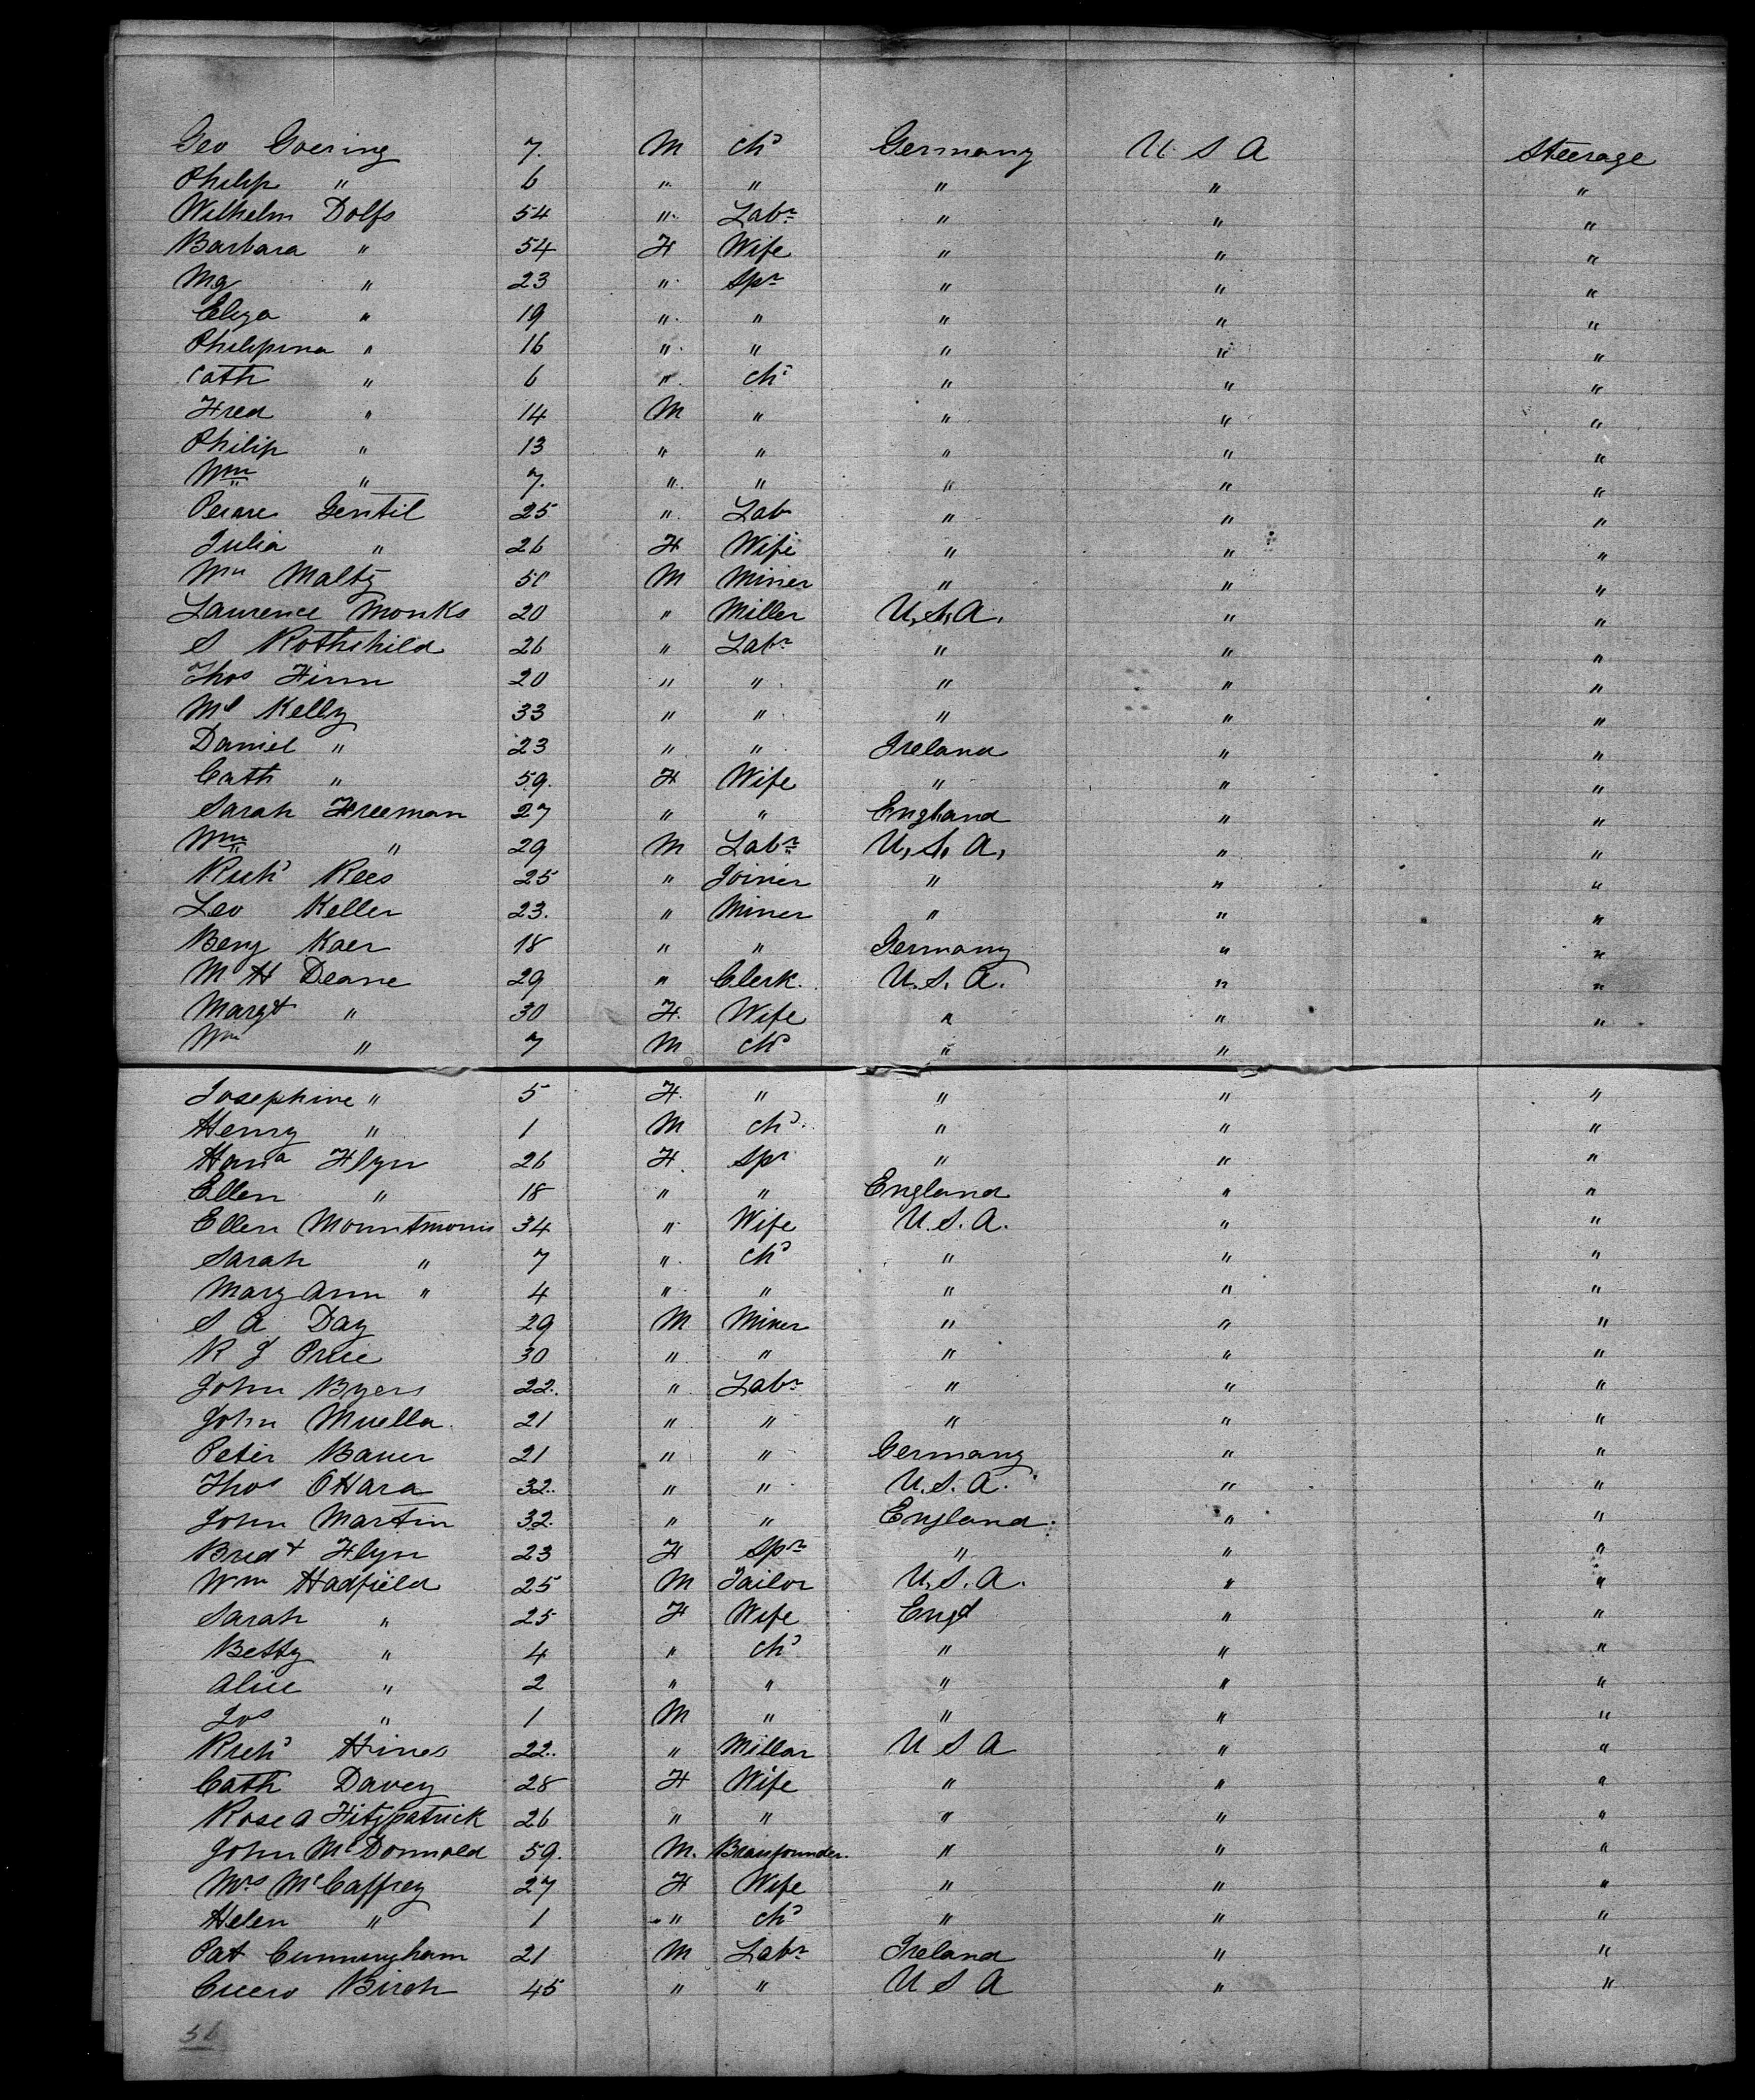 Geo Goering 7. M chd Germany U S A Steerage
Philip " 6 " " " " "
Wilhelm Dolfs 54 " Labr " " "
Barbara " 54 F Wife " " "
Mg " 23 " Spr " " "
Eliza " 19 " " " " "
Philipina " 16 " " " " "
Cath " 6 " chd " " "
Fred " 14 M " " " "
Philip " 13 " " " " "
Wm " 7. " " " " "
Gentil 25 " Lab " " "
Julia " 26 F Wife " " "
Wm Maltz 51 M Miner " " "
Laurence Monks 20 " Miller U.S.A. " "
S Rothchild 26 " Labr " " "
Thos Finn 20 " " " " "
Ml Kelly 33 " " " " "
Daniel " 23 " " Ireland " "
Cath " 59. F Wife " " "
Sarah Freeman 27 " " England " "
Wm " 29 M Labr U.S.A. " "
Richd Rees 25 " Joiner " " "
Leo Keller 23. " Miner " " "
Benj Kaer 18 " " Germany " "
M H Deane 29 " Clerk. U.S.A. " "
Margt " 30 F. Wife " " "
Wm " 7 M chd " "
Josephine " 5 F. " " " "
Henry " 1 M chd. " " "
Hana Flyn 26 F. Spr " " "
Ellen " 18 " " England " "
Ellen Mountmorris 34 " Wife U.S.A. " "
Sarah " 7 " chd " " "
Mary Ann " 4 " " " " "
S A Day 29 M Miner " " "
R J Price 30 " " " " "
John Byers 22. " Labr " " "
John Muella 21 " " " " "
Peter Bauer 21 " " Germany " "
Thos OHara 32. " " U.S.A. " "
John Martin 32. " " England " "
Bredt Flyn 23 F Spr " " "
Wm Hadfield 25 M Tailor U.S.A. " "
Sarah " 25 F Wife Engd " "
Betty " 4 " chd " " "
Alice " 2 " " " " "
Jos " 1 M " " " "
Richd Hines 22.. " Millar U S A " "
Cath Davey 28 F Wife " " "
Rose A Fitzpatrick 26 " " " " "
John McDonnald 59. M. Brassfounder. " " "
Mrs McCaffrey 27 F Wife " " "
Helen " 1 " chd " " "
Pat Cunningham 21 M Labr Ireland " "
Cicero Birch 45 " " U S A " "
56